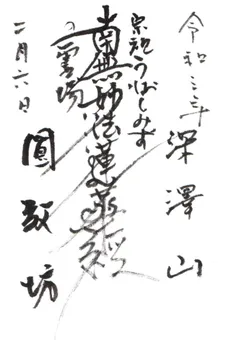 令和三年
深澤山
宗祖うばしみず
南無妙法蓮華経
霊場
圓教坊
二月六日